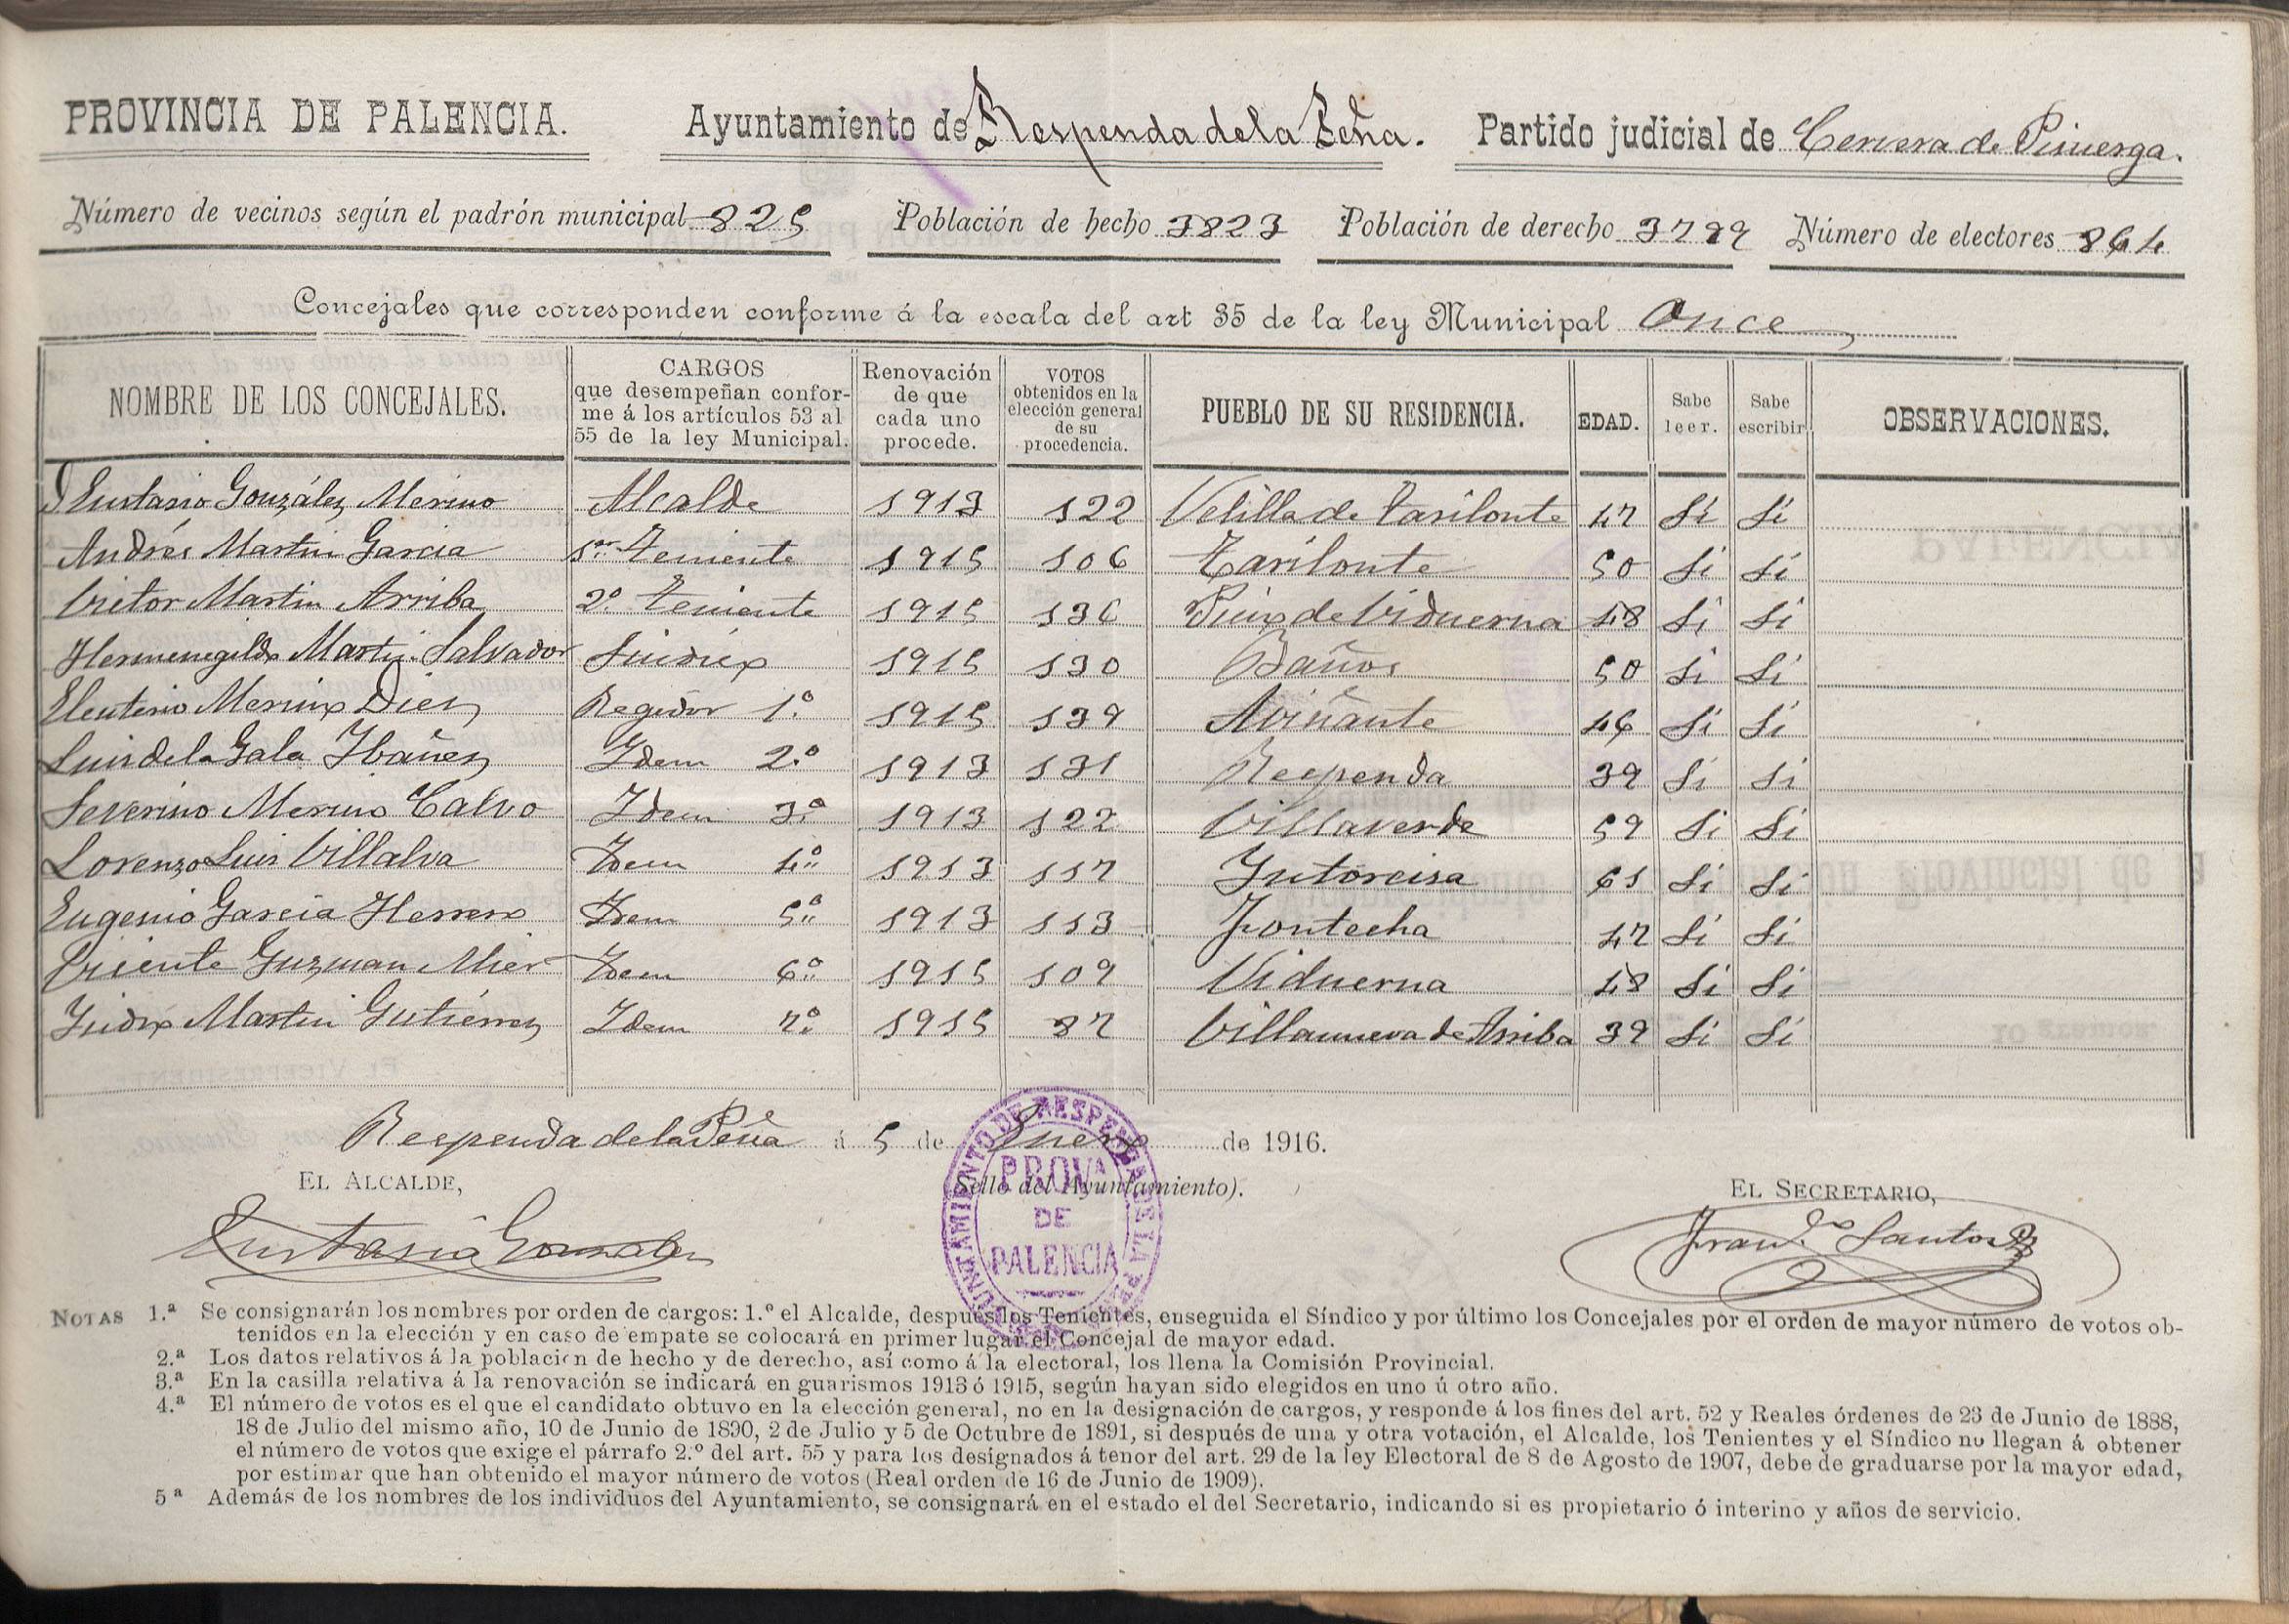 PROVINCIA DE PALENCIA. Ayuntamiento de Respenda de la Peña. Partido judicial de Cervera de Pisuerga.
Número de vecinos según el padrón municipal 825 Población de hecho 3823 Población de derecho 3799 Número de electores 864
Concejales que corresponden conforme á la escala del art 35 de la ley Municipal Once
NOMBRE DE LOS CONCEJALES. CARGOS que desempeñan conforme á los artículos 53 al 55 de la ley Municipal. Renovación de que cada uno procede. VOTOS obtenidos en la elección general de su procedencia. PUEBLO DE SU RESIDENCIA. EDAD. Sabe leer. Sabe escribir OBSERVACIONES.
D Eustasio González Merino Alcalde 1913 122 Velilla de Tarilonte 47 Si Si
Andrés Martin Garcia 1er Teniente 1915 106 Tarilonte 50 Si Si
Victor Martin Arriba 2º Teniente 1915 136 Pino de Viduerna 48 Si Si
Hermenegildo Martin Salvador Sindico 1915 130 Baños 50 Si Si
Eleuterio Merino Diez Regidor 1º 1915 139 Aviñante 46 Si Si
Luis de la Gala Ibañez Idem 2º 1913 131 Respenda 39 Si Si
Severino Merino Calvo Idem 3º 1913 122 Villaverde 59 Si Si
Lorenzo Luis Villalva Idem 4º 1913 117 Intorcisa 61 Si Si
Eugenio Garcia Herrero Idem 5º 1913 113 Fontecha 47 Si Si
Vicente Guzman Mier Idem 6º 1915 109 Viduerna 48 Si Si
Isidro Martin Gutiérrez Idem 7º 1915 87 Villanueva de Arriba 39 Si Si
Respenda de la Peña á 5 de Enero de 1916.
EL ALCALDE, (Sello del Ayuntamiento). EL SECRETARIO,
AYUNTAMIENTO DE RESPENDA DE LA PEÑA
PROVA
DE
PALENCIA
Eustasio Gonzalez Franco Santos
NOTAS 1.ª Se consignarán los nombres por orden de cargos: 1.º el Alcalde, después los Tenientes, enseguida el Síndico y por último los Concejales por el orden de mayor número de votos ob-
tenidos en la elección y en caso de empate se colocará en primer lugar el Concejal de mayor edad.
2.ª Los datos relativos á la población de hecho y de derecho, así como á la electoral, los llena la Comisión Provincial.
3.ª En la casilla relativa á la renovación se indicará en guarismos 1913 ó 1915, según hayan sido elegidos en uno ú otro año.
4.ª El número de votos es el que el candidato obtuvo en la elección general, no en la designación de cargos, y responde á los fines del art. 52 y Reales órdenes de 23 de Junio de 1888,
18 de Julio del mismo año, 10 de Junio de 1890, 2 de Julio y 5 de Octubre de 1891, si después de una y otra votación, el Alcalde, los Tenientes y el Síndico no llegan á obtener
el número de votos que exige el párrafo 2.º del art. 55 y para los designados á tenor del art. 29 de la ley Electoral de 8 de Agosto de 1907, debe de graduarse por la mayor edad,
por estimar que han obtenido el mayor número de votos (Real orden de 16 de Junio de 1909).
5ª Además de los nombres de los individuos del Ayuntamiento, se consignará en el estado el del Secretario, indicando si es propietario ó interino y años de servicio.